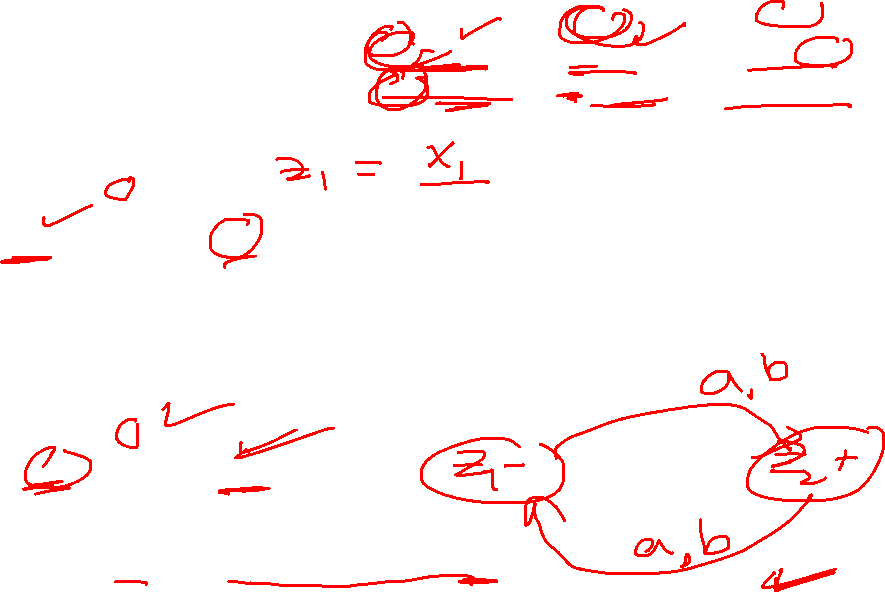 z₁ = x₁
a, b
z₁ -
z₂ +
a, b